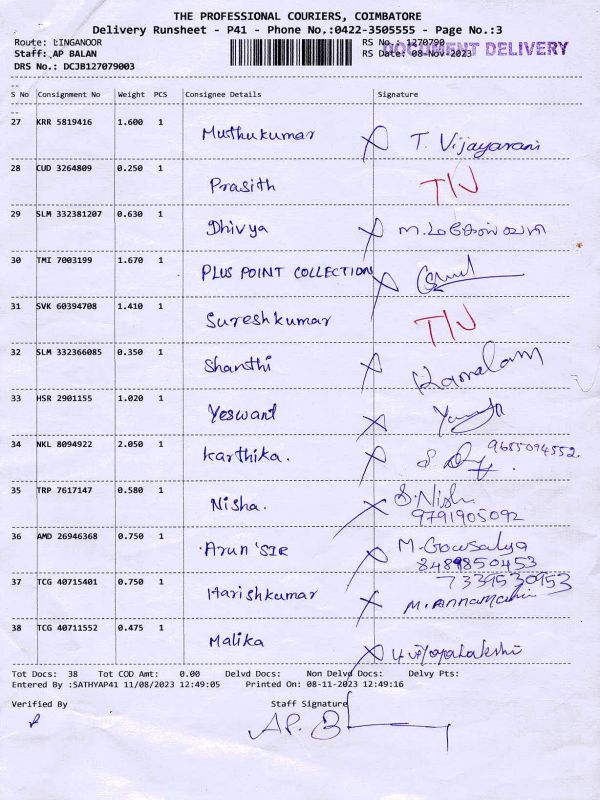 THE PROFESSIONAL COURIERS, COIMBATORE
Delivery Runsheet - P41 - Phone No.:0422-3505555 - Page No.:3
Route: LINGANOOR
RS No.: 1270790
DOCUMENT DELIVERY
Staff: AP BALAN
RS Date: 08-Nov-2023
DRS No.: DCJB127079003
S No Consignment No Weight PCS Consignee Details Signature
27 KRR 5819416 1.600 1 Muthukumar T. Vijayarani
28 CUD 3264809 0.250 1 Prasith T/J
29 SLM 332381207 0.630 1 Dhivya
30 TMI 7003199 1.670 1 PLUS POINT COLLECTION
31 SVK 60394708 1.410 1 Sureshkumar T/J
32 SLM 332366085 0.350 1 Shanthi Kamalam
33 HSR 2901155 1.020 1 Yeswant
34 NKL 8094922 2.050 1 Karthika. 9655094552.
35 TRP 7617147 0.580 1 Nisha. S. Nisha
9791905092
36 AMD 26946368 0.750 1 Arun 'SIR M. Gowsalya
8489850453
37 TCG 40715401 0.750 1 Harishkumar 7339530953
M. Annamani
38 TCG 40711552 0.475 1 Malika Vijayalakshi
Tot Docs: 38 Tot COD Amt: 0.00 Delvd Docs: Non Delvd Docs: Delvy Pts:
Entered By :SATHYAP41 11/08/2023 12:49:05 Printed On: 08-11-2023 12:49:16
Verified By Staff Signature
AP. B